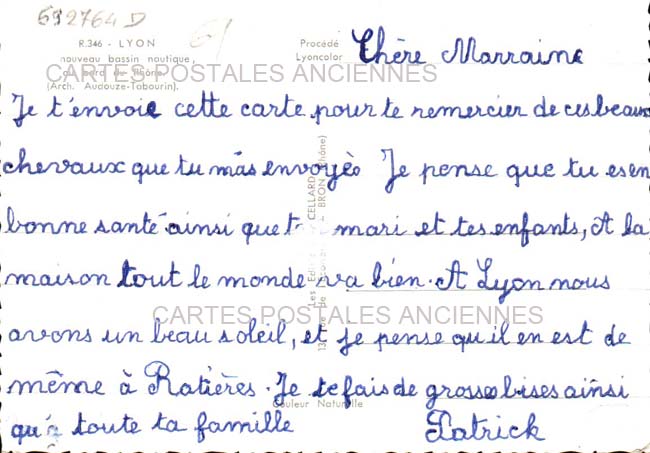 592764 D
R.346 - LYON
nouveau bassin nautique,
au bord du Rhône.
(Arch. Audouze-Tabourin).
Procédé
Lyoncolor
CARTES POSTALES ANCIENNES
Chère Marraine
Je t'envoie cette carte pour te remercier de ces beaux
chevaux que tu m'as envoyés Je pense que tu es en
bonne santé ainsi que t mari et tes enfants, A la
maison tout le monde va bien. A Lyon nous
avons un beau soleil, et je pense qu'il en est de
même à Ratières. Je te fais de grosse bises ainsi
qu'à toute ta famille Patrick
CARTES POSTALES ANCIENNES
CELLARD
BRON (Rhône)
Couleur Naturelle